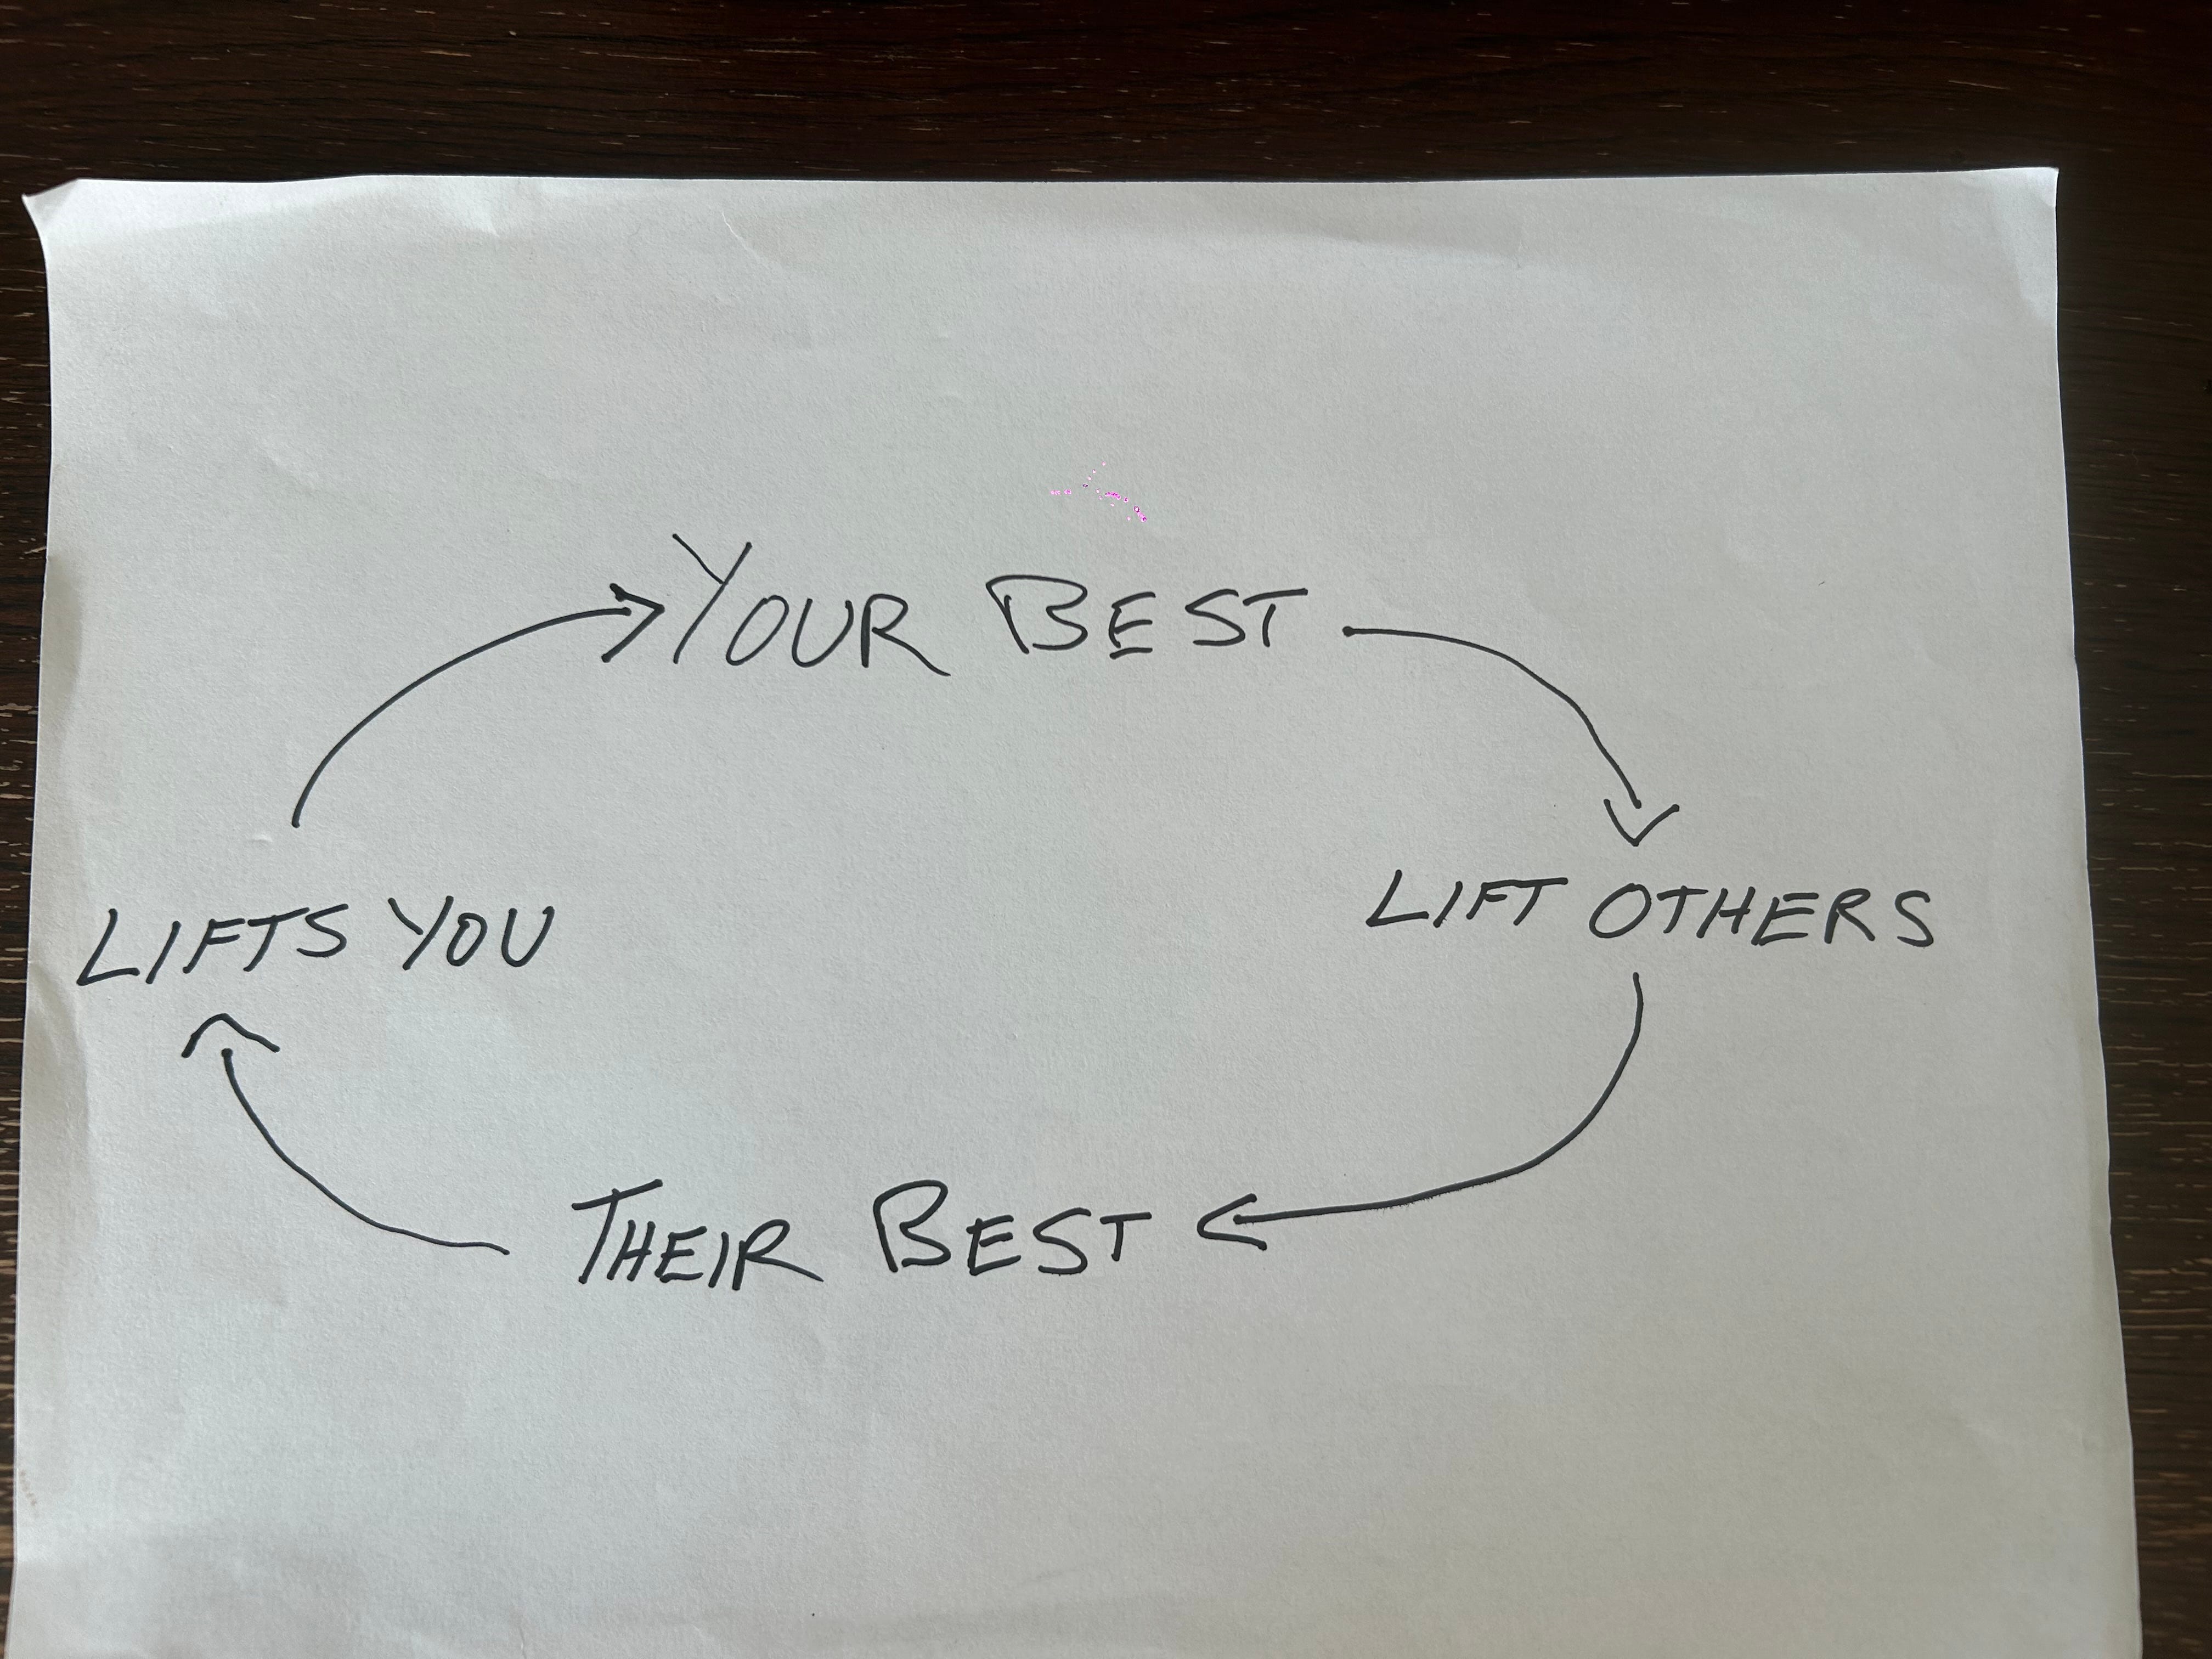 YOUR BEST
LIFT OTHERS
THEIR BEST
LIFTS YOU